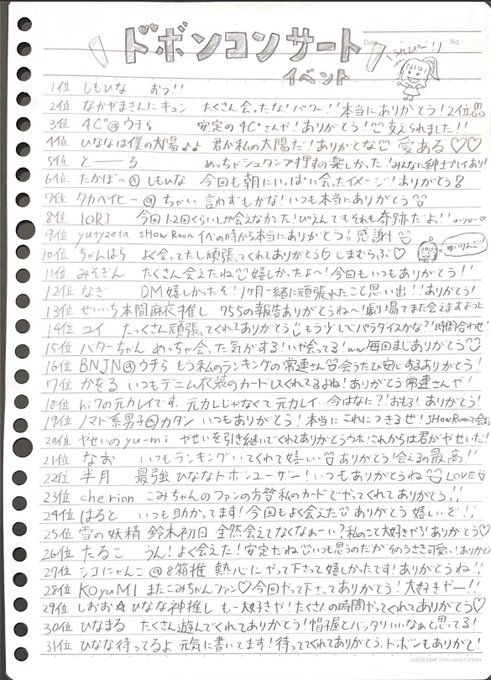 ドボンコンサート
イベント
Date
No
1位 しもひな おっ!!
2位 なかやまきんにキュン たくさん会えたな!パワー!!本当にありがとう!2位
3位 4℃@ウチら 安定の4℃さんや!ありがとう! 支えられました!!
4位 ひななは僕の太陽 君が私の太陽だ!ありがとな 愛ある♡♡
5位 と――る めっちゃスタンプ押すの楽しかった!みんなに紳士プレイあり!
6位 たかぼ〜@しもひな 今回も朝にいっぱい会ったイメージ!ありがとう!
7位 クカヘイヒー@ちゃい 言わずもがな!いつも本当にありがとう
8位 IORI 今回1,2回くらいしか会えなかった!ぴえんでもそれも奇跡だよ!!
9位 yutyzota SHOWROOMイベの時から本当にありがとう!感謝
10位 ちゃんはら よく会ってたし頑張ってくれてありがとう しまむらぶ♡
11位 みそぎん たくさん会えたね 嬉しかったよ〜!今回もいつもありがとう!!
12位 なぎ DM嬉しかったぞ!1ヶ月一緒に頑張れたこと思い出!!ありがとう!
13位 せいいち本間麻衣推し 755の報告ありがとうね〜!劇場でまた会えますように
14位 ユイ たっくさん頑張ってくれてありがとう もう少しでパラダイスかな?時間合わせ
15位 バターちゃん めっちゃ会った気がする!いや会ってる!ww毎回まじありがとう
16位 BNJN@ウチら もう私のランキングの常連さん 会うたび安心するありがとう!
17位 かをる いつもデニム衣装のカードしてくれてるよね!ありがとう常連さんや!
18位 hi7の元カレです。 元カレじゃなくて元カレイ 今はなに?!おもろ!ありがとう!
19位 ノマド系男子@カタン いつもありがとう!本当にこれにつきるぜ!SHOWROOMで会お
20位 やせいのyu-mi やせいを引き継いでくれてありがとうウホ これからは君がやせいだ!
21位 なお いつもランキングいてくれて嬉しい ありがとう!会えるの最高!!
22位 半月 最強ひななドボンユーザー!いつもありがとうね LOVE
23位 cherion こみちゃんのファンの方 私のカードでやってくれてありがとう!!
24位 はると いつも助かってます!今回もよく会えた ありがとう 嬉しいぞ!!
25位 雪の妖精 鈴木初日 全然会えてなくなぁーい?私のこと大好きやろ!ありがとう♡
26位 たるこ うん!よく会えた!安定だね いつも思うのだが そのうさぎ可愛い!ありがとう
27位 シコにゃんこ@8箱推 熱心にやって下さって嬉しかったです!ありがとうね!
28位 KoyuMI またこみちゃんファン♡今回やって下さってありがとう!大好きやー!!
29位 しおお☆ひなな神推し も〜大好きや!たくさんの時間やってくれてありがとう♡
30位 ひなまる たくさん遊んでくれてありがとう!帽屋とバッタリいいなぁと思ってる!
31位 ひなな待ってるよ 元気に書いてます!待っててくれてありがとう、ドボンもありがと!